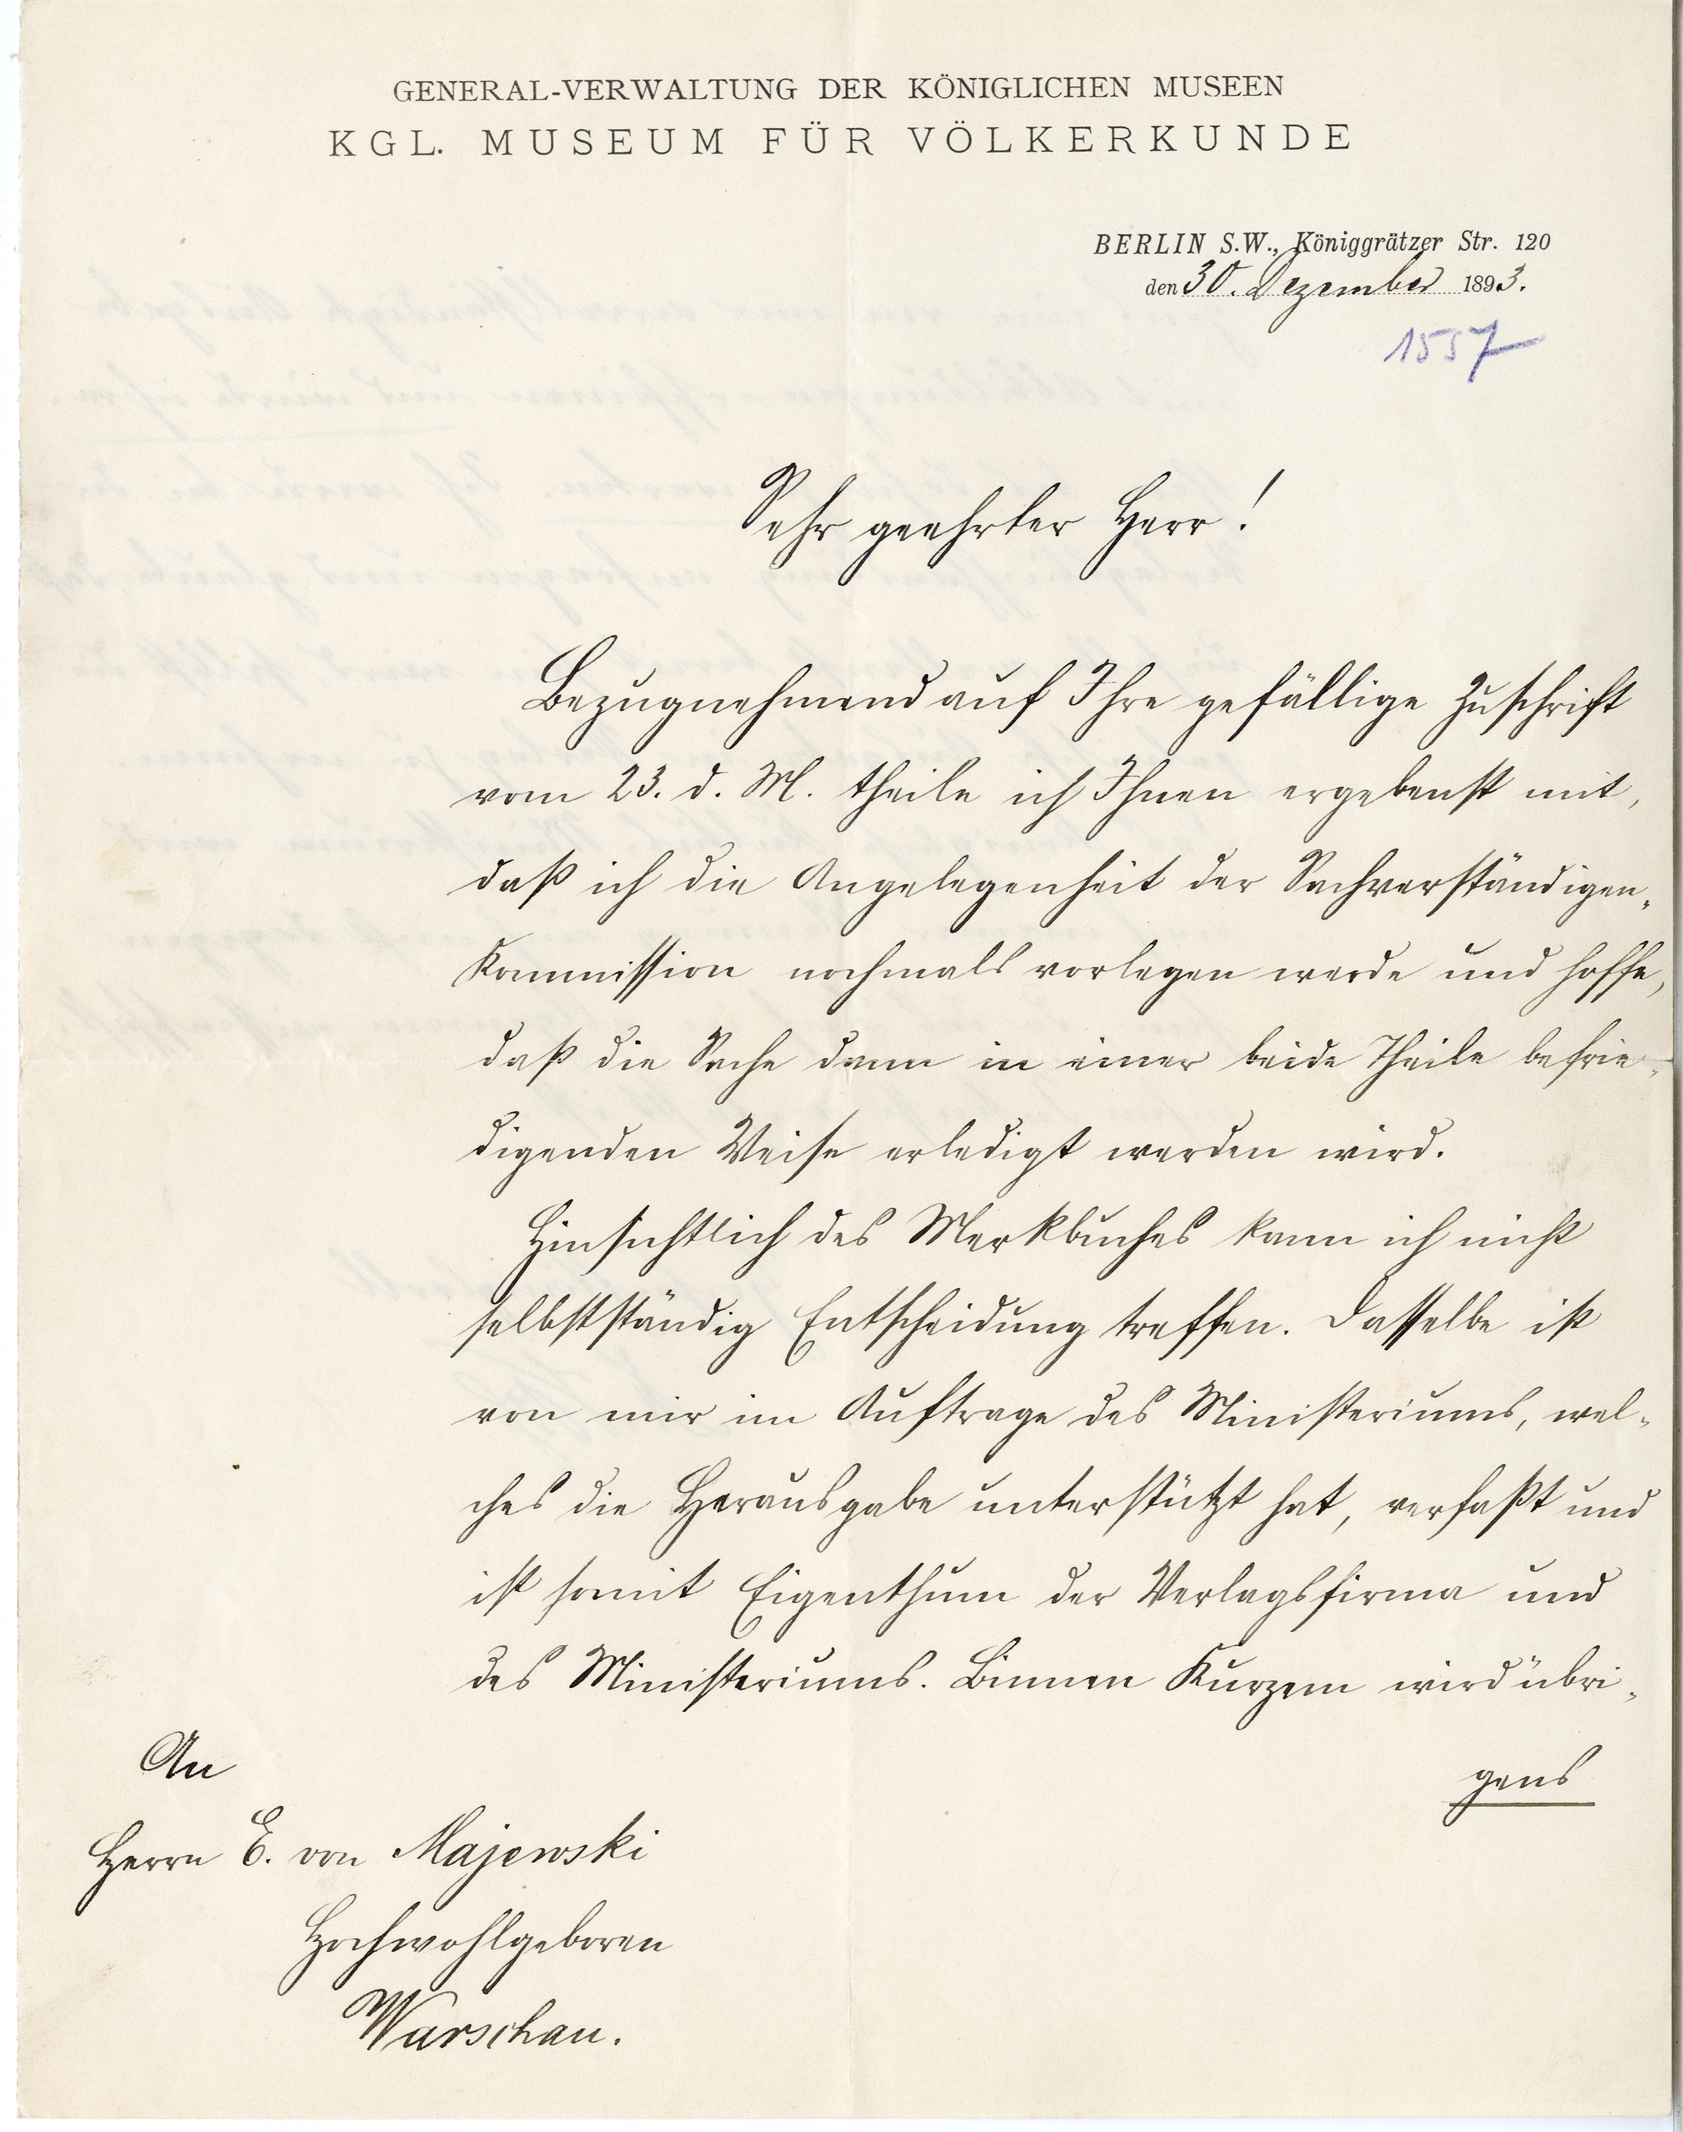 GENERAL-VERWALTUNG DER KÖNIGLICHEN MUSEEN
KGL. MUSEUM FÜR VÖLKERKUNDE
BERLIN S.W., Königgrätzer Str. 120
den 30. Dezember 1893.
1557
Sehr geehrter Herr!
Bezugnehmend auf Ihre gefällige Zuschrift
vom 23. d. M. theile ich Ihnen ergebenst mit,
daß ich die Angelegenheit der Sachverständigen-
Kommission nochmals vorlegen werde und hoffe,
daß die Sache dann in einer beide Theile befrie-
digenden Weise erledigt werden wird.
Hinsichtlich des Merkbuches kann ich nicht
selbstständig Entscheidung treffen. Dasselbe ist
von mir im Auftrage des Ministeriums, wel-
ches die Herausgabe unterstützt hat, verfaßt und
ist somit Eigenthum der Verlagsfirma und
des Ministeriums. Binnen Kurzem wird übri-
gens
An
Herrn E. von Majewski
Hochwohlgeboren
Warschau.